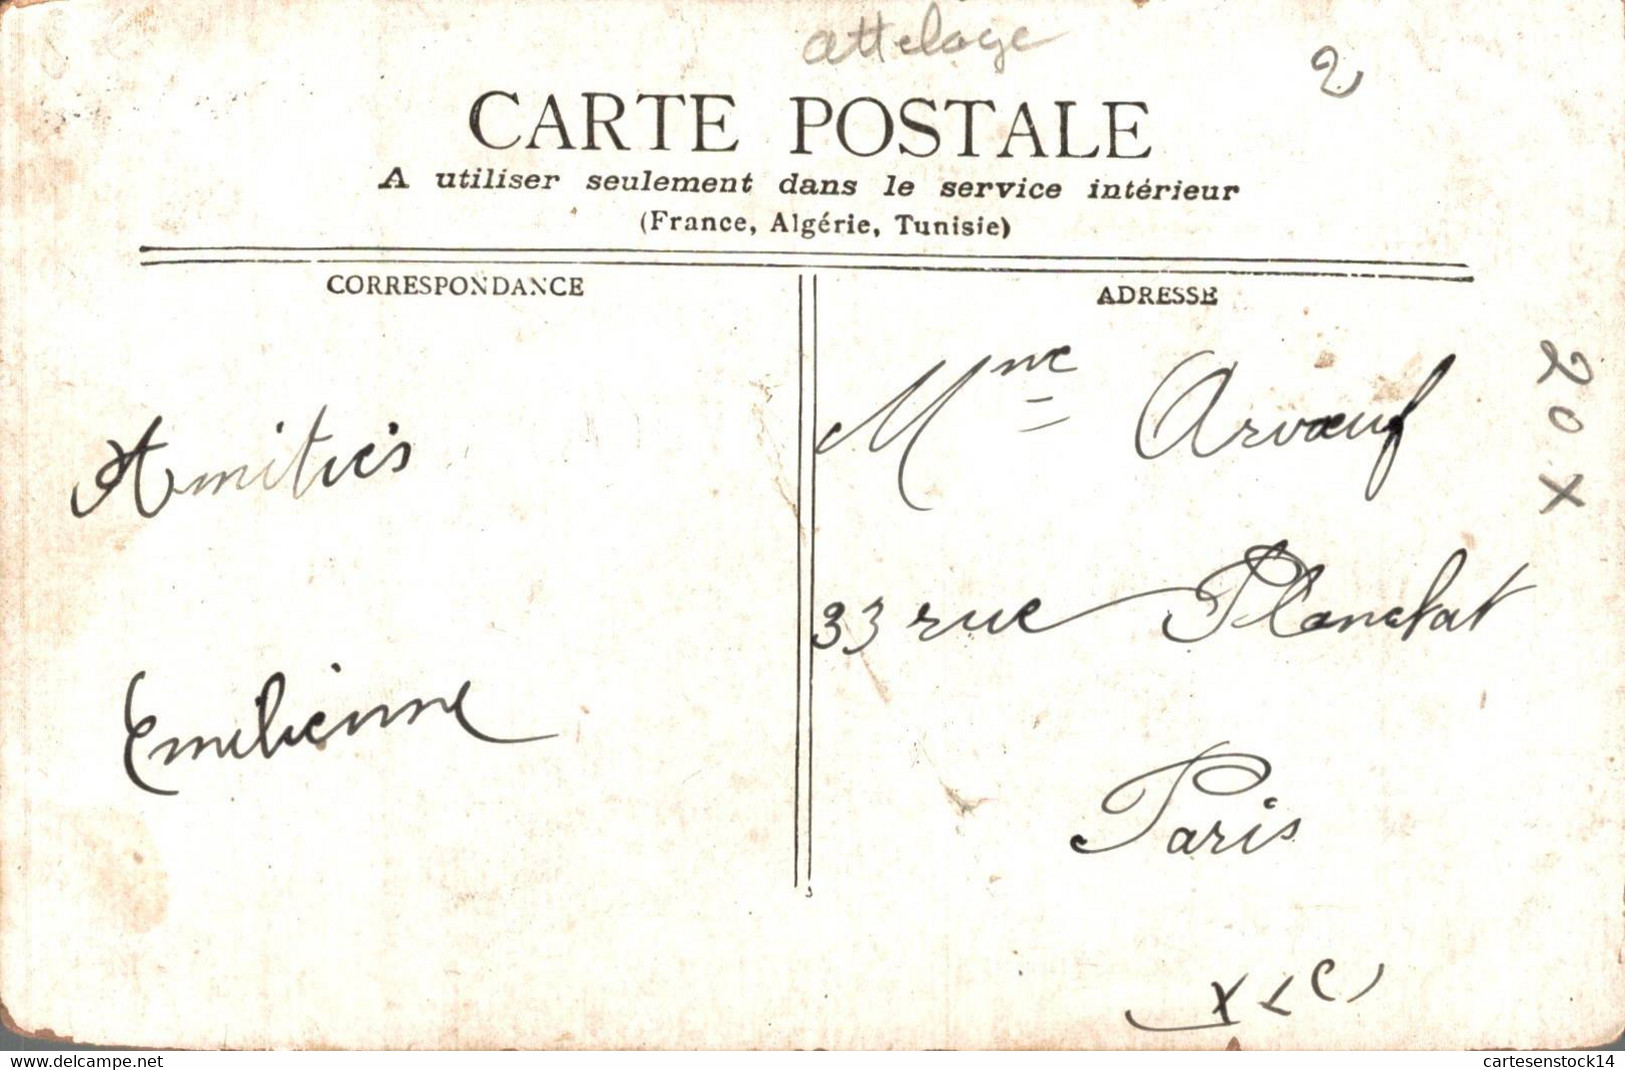 attelage
2
CARTE POSTALE
A utiliser seulement dans le service intérieur
(France, Algérie, Tunisie)
CORRESPONDANCE
ADRESSE
Amitiés
Emilienne
Mme Arvœuf
33 rue Planchat
Paris
XXe
20 X
delcampe.net
cartesenstock14